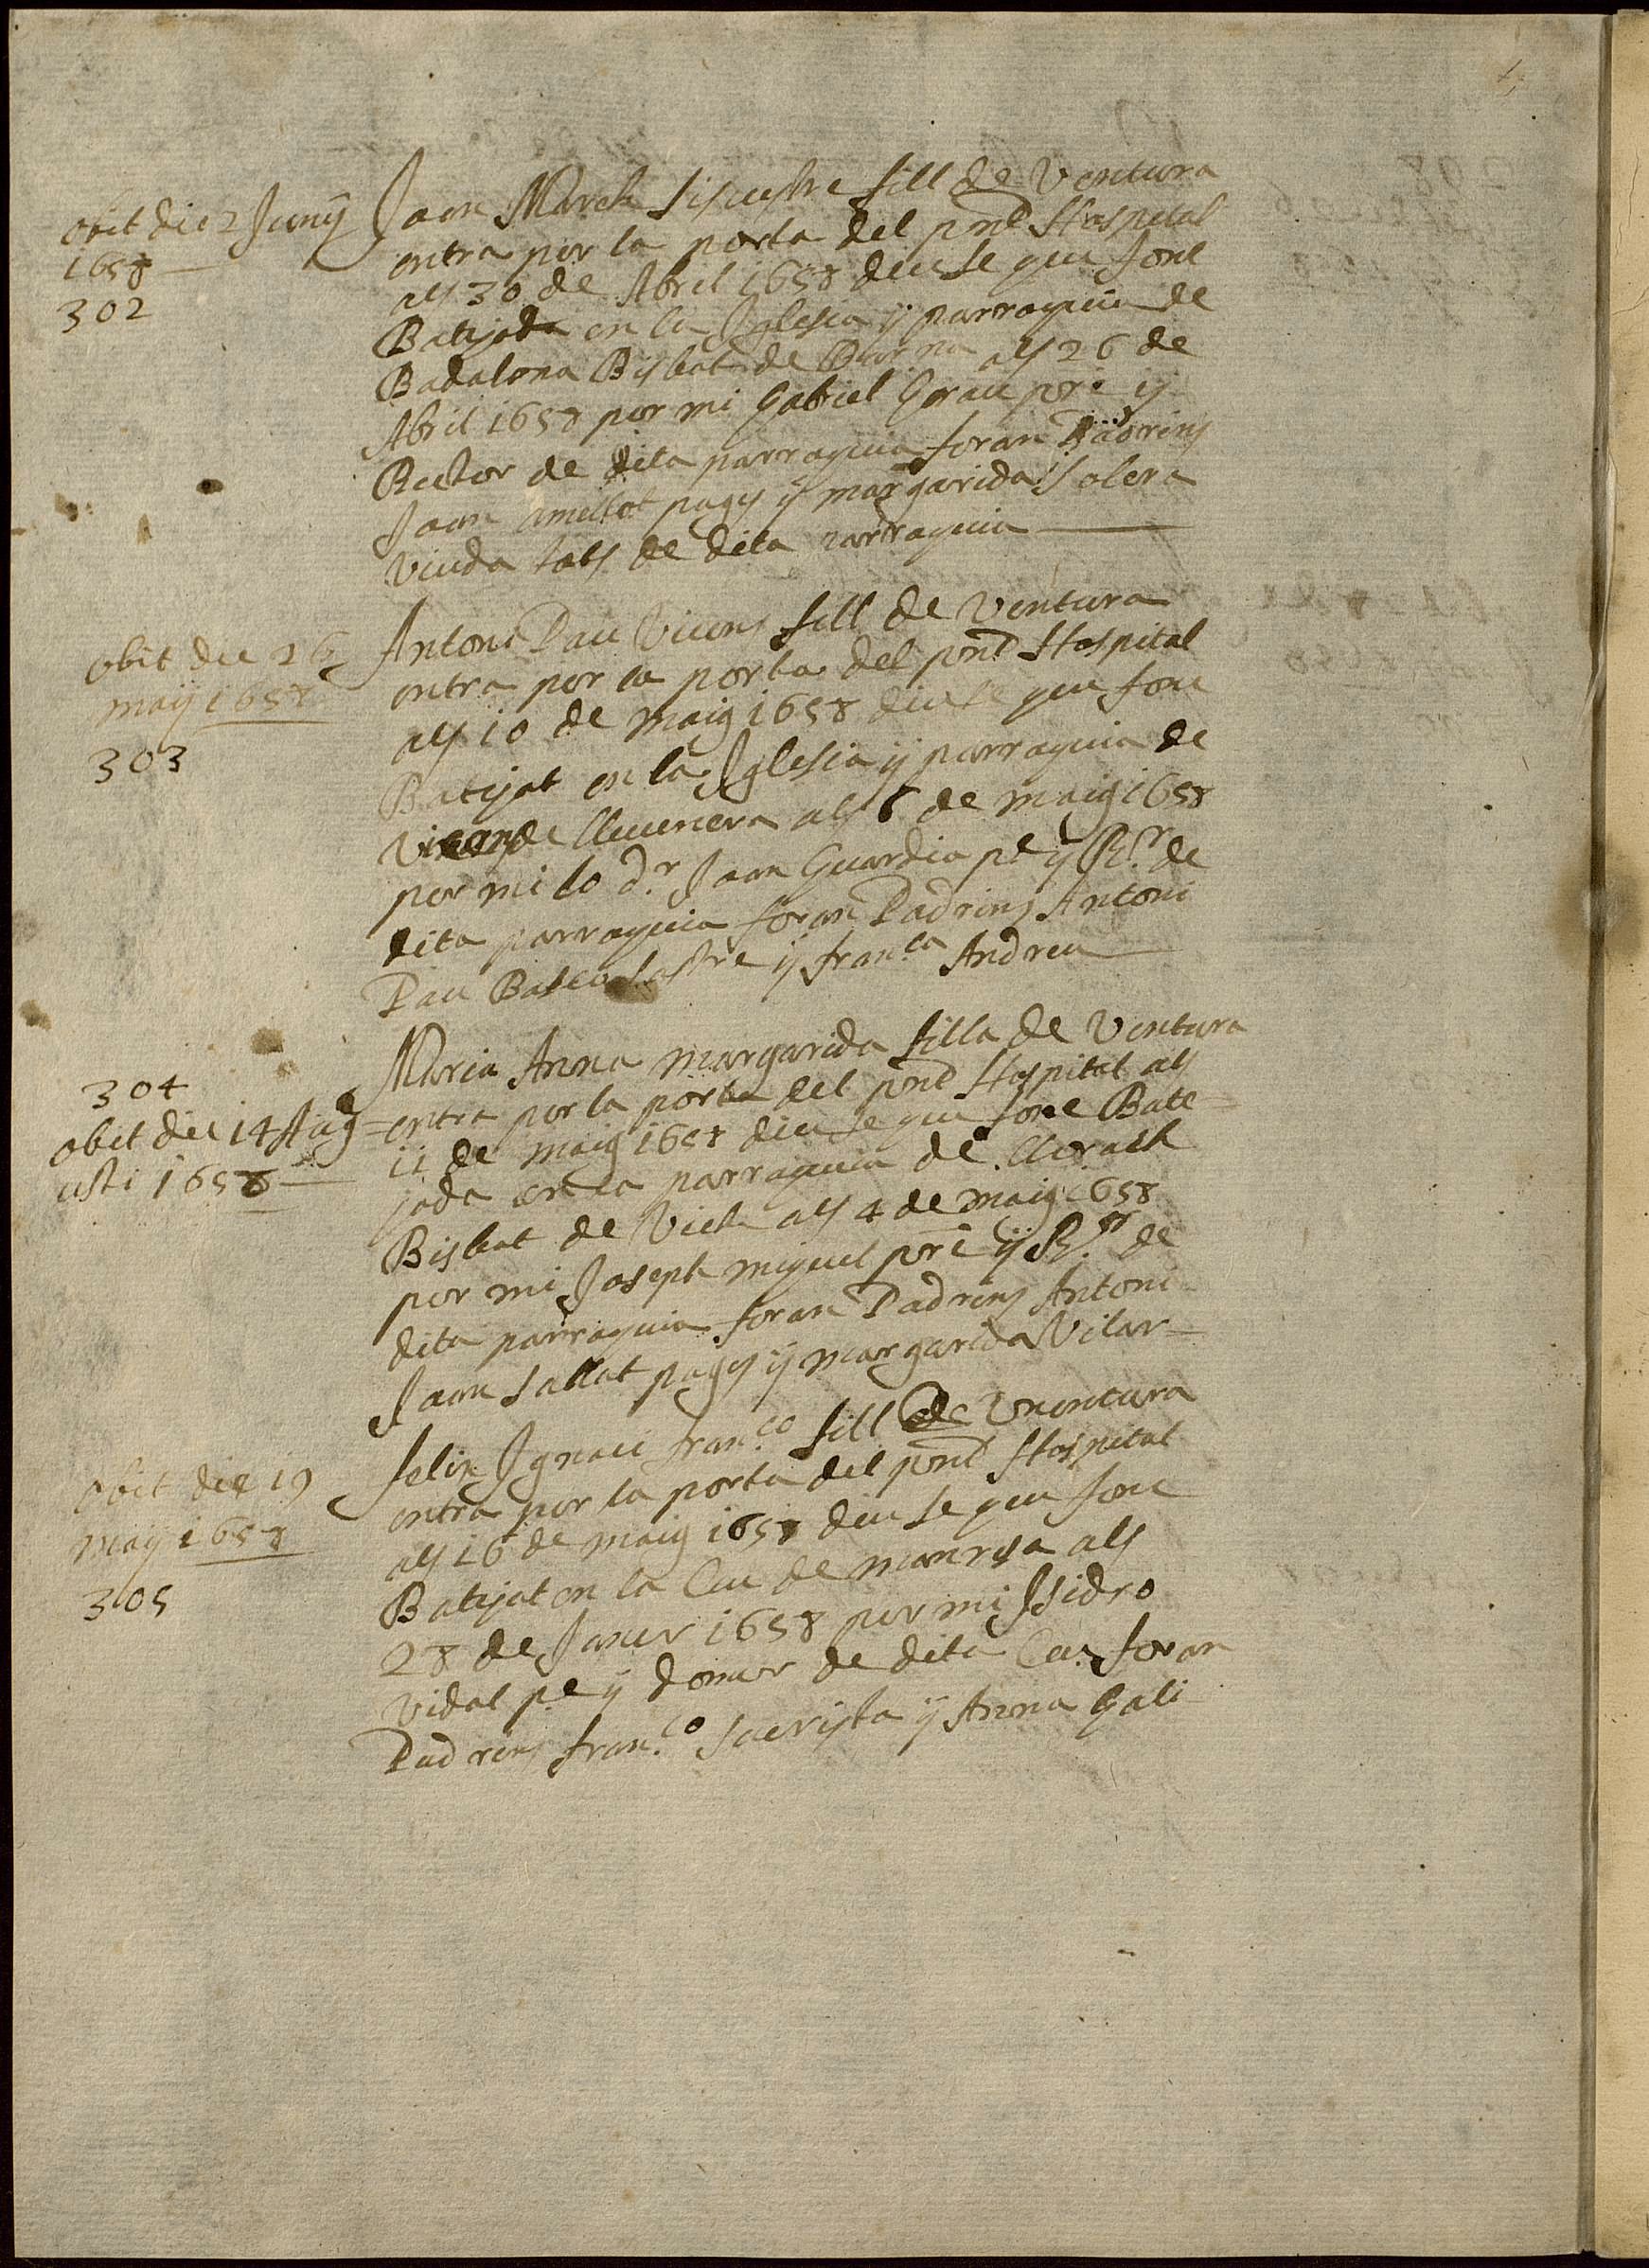 obit die 2 Junÿ
1658
302
Joan March Siluestre fill de Ventura
entra per la porta del pnt Hospital
als 30 de Abril 1658 diu se que fonc
Batejada en la Jglesia ÿ parraquia de
Badalona Bisbat de Bar.na als 26 de
Abril 1658 per mi Gabriel Grau pre ÿ
Rector de dita parraquia foran Padrins
Joan amellot pages ÿ margarida Solera
viuda tots de dita parraquia
obit die 26
maÿ 1658
303
Antoni Pau Vicens fill de Ventura
entra per la porta del pnt Hospital
als 10 de maig 1658 diu se que fonc
Batejat en la Jglesia ÿ parraquia de
de lleuenera als 6 de maig 1658
per mi lo d.r Joan Guardia pe ÿ R.r de
dita parraquia foran Padrins Antoni
Pau sastre ÿ fran.ca Andreu
304
obit die 14 Aug=
usti 1658
Maria Anna margarida filla de Ventura
entra per la porta del pnt Hospital als
11 de maig 1658 diu se que fonc Bate=
jada en la parraquia de llorach
Bisbat de Vich als 4 de maig 1658
per mi Joseph miquel pre ÿ R.or de
dita parraquia foran Padrins Antoni
Joan Sallat pages ÿ margarida Vilar=
obit die 19
maÿ 1658
305
felix Jgnaci fran.co fill de Vnentura
entra per la porta del pnt Hospital
als 16 de maig 1658 diu se que fonc
Batejat en la Ceu de manresa als
28 de Janer 1658 per mi Jsidro
Vidal pe ÿ domer de dita Ceu foran
Padrins fran.co Sacrista ÿ Anna Gali